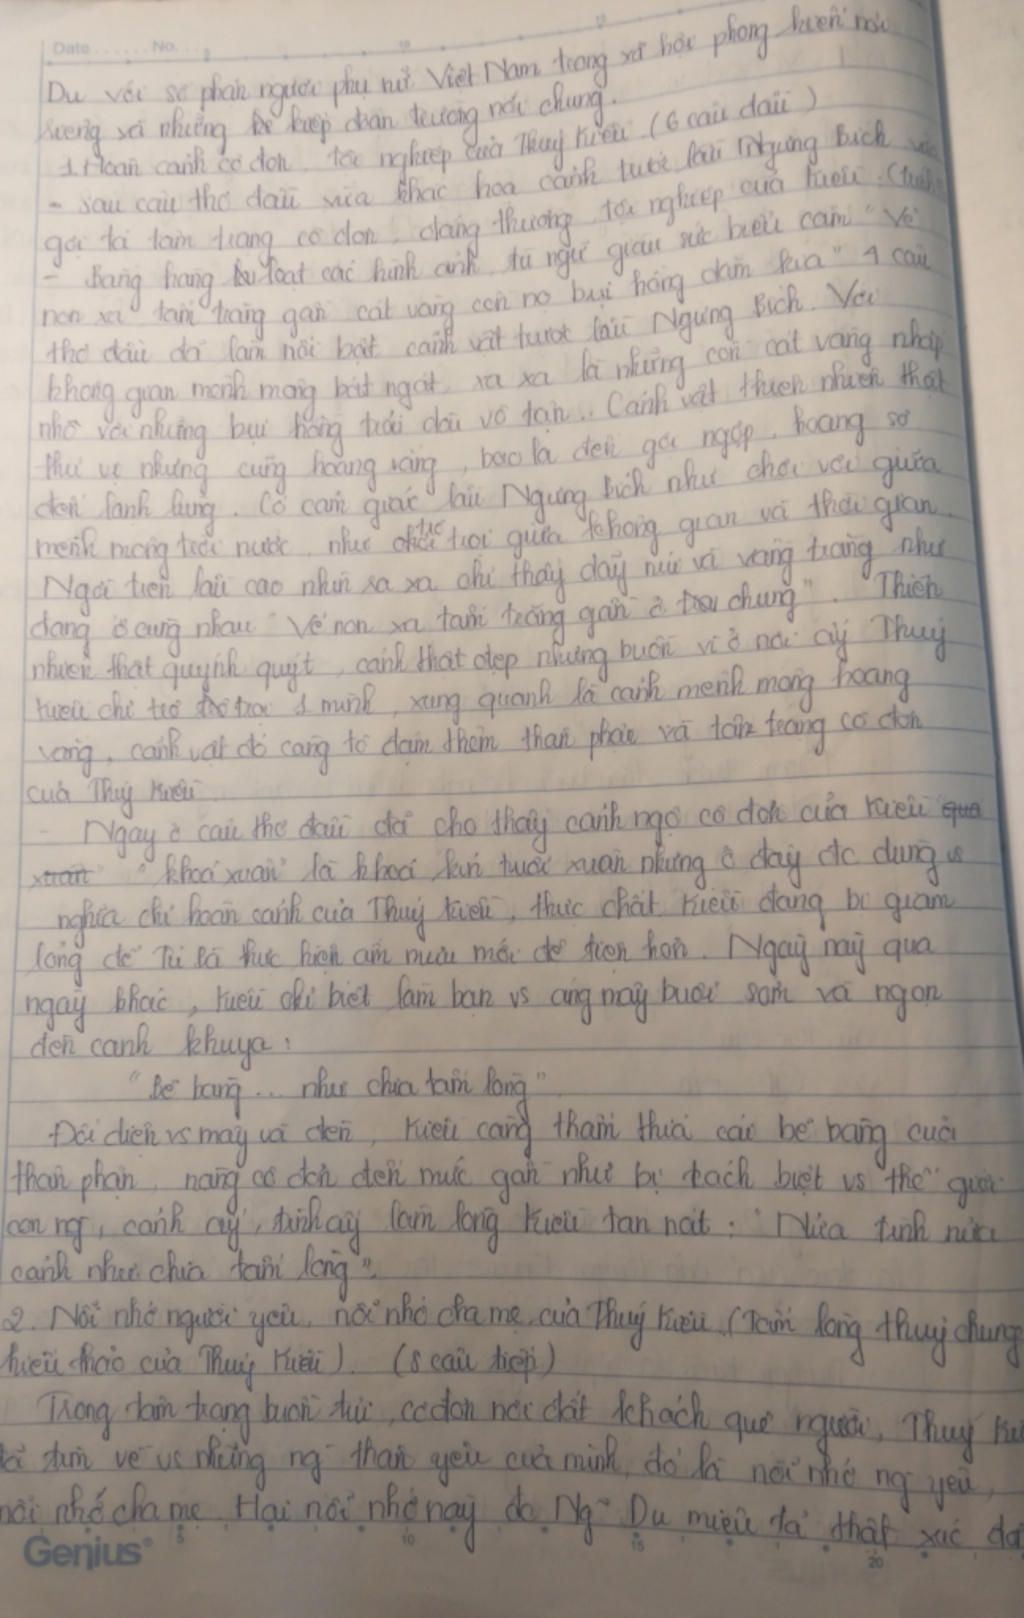 Date ...... No. ...
Du với số phận người phụ nữ Việt Nam trong xã hội phong kiến nói
riêng và những kiếp đoạn trường nói chung.
1. Hoàn cảnh cô đơn, tội nghiệp của Thuý Kiều. (6 câu đầu)
- Sáu câu thơ đầu vừa khắc hoạ cảnh trước lầu Ngưng Bích vừa
gợi tả tâm trạng cô đơn, đáng thương, tội nghiệp của Kiều.
- Bằng hàng loạt các hình ảnh, từ ngữ giàu sức biểu cảm "Vẻ
non xa tấm trăng gần cát vàng cồn nọ bụi hồng dặm kia" 4 câu
thơ đầu đã làm nổi bật cảnh vật trước lầu Ngưng Bích. Với
không gian mênh mông bát ngát, xa xa là những cồn cát vàng nhấp
nhô với những bụi hồng trải dài vô tận.. Cảnh vật thiên nhiên thật
thú vị nhưng cũng hoang vắng, bao la đến gợi ngợp, hoang sơ
đến lạnh lùng. Có cảm giác lầu Ngưng Bích như chơi vơi giữa
mênh mông trời nước, như trơ trọi giữa không gian và thời gian.
Ngồi trên lầu cao nhìn xa xa chỉ thấy dãy núi và vầng trăng như
đang ở cùng nhau "Vẻ non xa tấm trăng gần ở chung". Thiên
nhiên thật quýnh quýt, cảnh thật đẹp nhưng buồn vì ở nơi ấy Thuý
Kiều chỉ trơ trọi 1 mình, xung quanh là cảnh mênh mông hoang
vắng, cảnh vật đó càng tô đậm thêm thân phận và tâm trạng cô đơn
của Thuý Kiều.
- Ngay ở câu thơ đầu đã cho thấy cảnh ngộ cô đơn của Kiều qua
xuân "khoá xuân" là khoá kín tuổi xuân nhưng ở đây đc dùng vs
nghĩa chỉ hoàn cảnh của Thuý Kiều, thực chất Kiều đang bị giam
lỏng để Tú Bà thực hiện âm mưu mới đê tiện hơn. Ngày này qua
ngày khác, Kiều chỉ biết làm bạn vs áng mây buổi sớm và ngọn
đèn canh khuya:
"Bẽ bàng ... như chia tấm lòng"
Đối diện vs mây và đèn, Kiều càng thấm thía cái bẽ bàng của
thân phận, nàng cô đơn đến mức gần như bị tách biệt vs thế giới
con ng, cảnh ấy, tình ấy làm lòng Kiều tan nát: "Nửa tình nửa
cảnh như chia tấm lòng".
2. Nỗi nhớ người yêu, nỗi nhớ cha mẹ của Thuý Kiều (Tấm lòng thuỷ chung
hiếu thảo của Thuý Kiều). (8 câu tiếp)
Trong tâm trạng buồn tủi, cô đơn nơi đất khách quê người, Thuý
tìm về vs những ng thân yêu của mình, đó là nỗi nhớ ng yêu,
nỗi nhớ cha mẹ. Hai nỗi nhớ này đc Ng~ Du miêu tả thật xúc
Genius